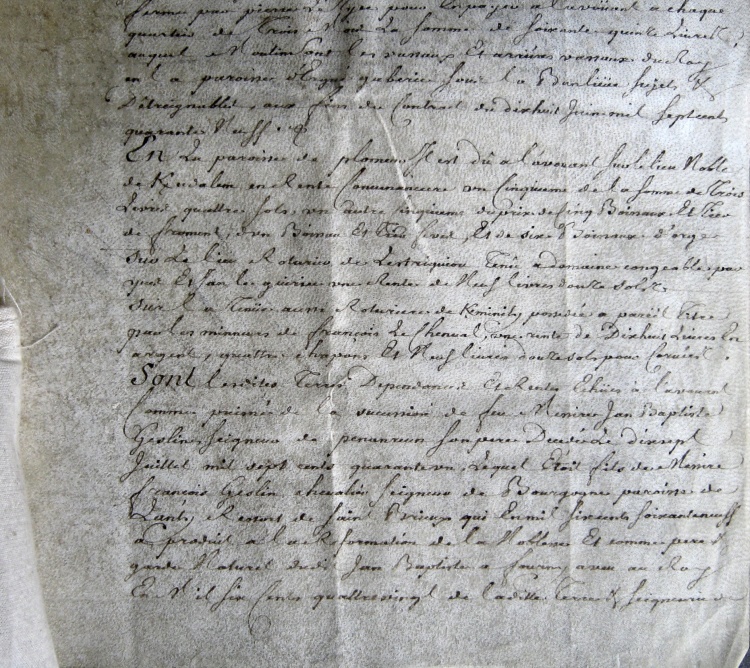 ferme par pierre Le pour En payer a l'avouant a chaque
quartier de Trois Mois La somme de soixante quinze Livres
auquel Moulin sont les vassaux Et arriere vassaux du Roy
en la paroisse d'Ergué gaberic sous la Banlieüe, sujets &
Détreignables, aux fins du Contract du dixhuit Juin mil sept cents
quarante Neuff. &
En La paroisse de plomeur Il est dû a l'avouant sur le lieu Noble
de Kerdalem en Rente Convenanciere un Cinquieme de la somme de Trois
Livres quattre sols, un autre cinquieme du prix de Cinq Boisaux Et
de froment, d'un Boisau Et Et de six Boisaux d'orge
Sur Le Lieu Roturier de Lestriguiou Tenüe a domaine congeable par
Et Jan Le une Rente de Neuf livres douze sols.
Sur la Tenüe aussi Roturiere de possedée a pareil Titre
par les mineurs de françois Le Cheneal, une rente de Dixhuit Livres En
argent, quattre chapons Et Neuf livres douze sols pour Corvées.
Sont Lesdites Terres Dependances Et Rentes Echües a l'avouant
Comme puisnée de la succession de feu Messire Jan Baptiste
Geslin Seigneur de penanrun son pere Decedé Le dixsept
Juillet mil sept cents quarante un, Lequel Etoit fils de Messire
François Geslin, chevalier Seigneur de Bourgogne paroisse de
Lantic Ressort de Saint Brieux qui En mil six cents soixante neuff
a produit a la Reformation de la Noblesse Et comme pere &
garde Naturel dudit Jan Baptiste a fourny aveu au Roy
En Mil six Cents quattre vingt de laditte Terre & Seigneurie de